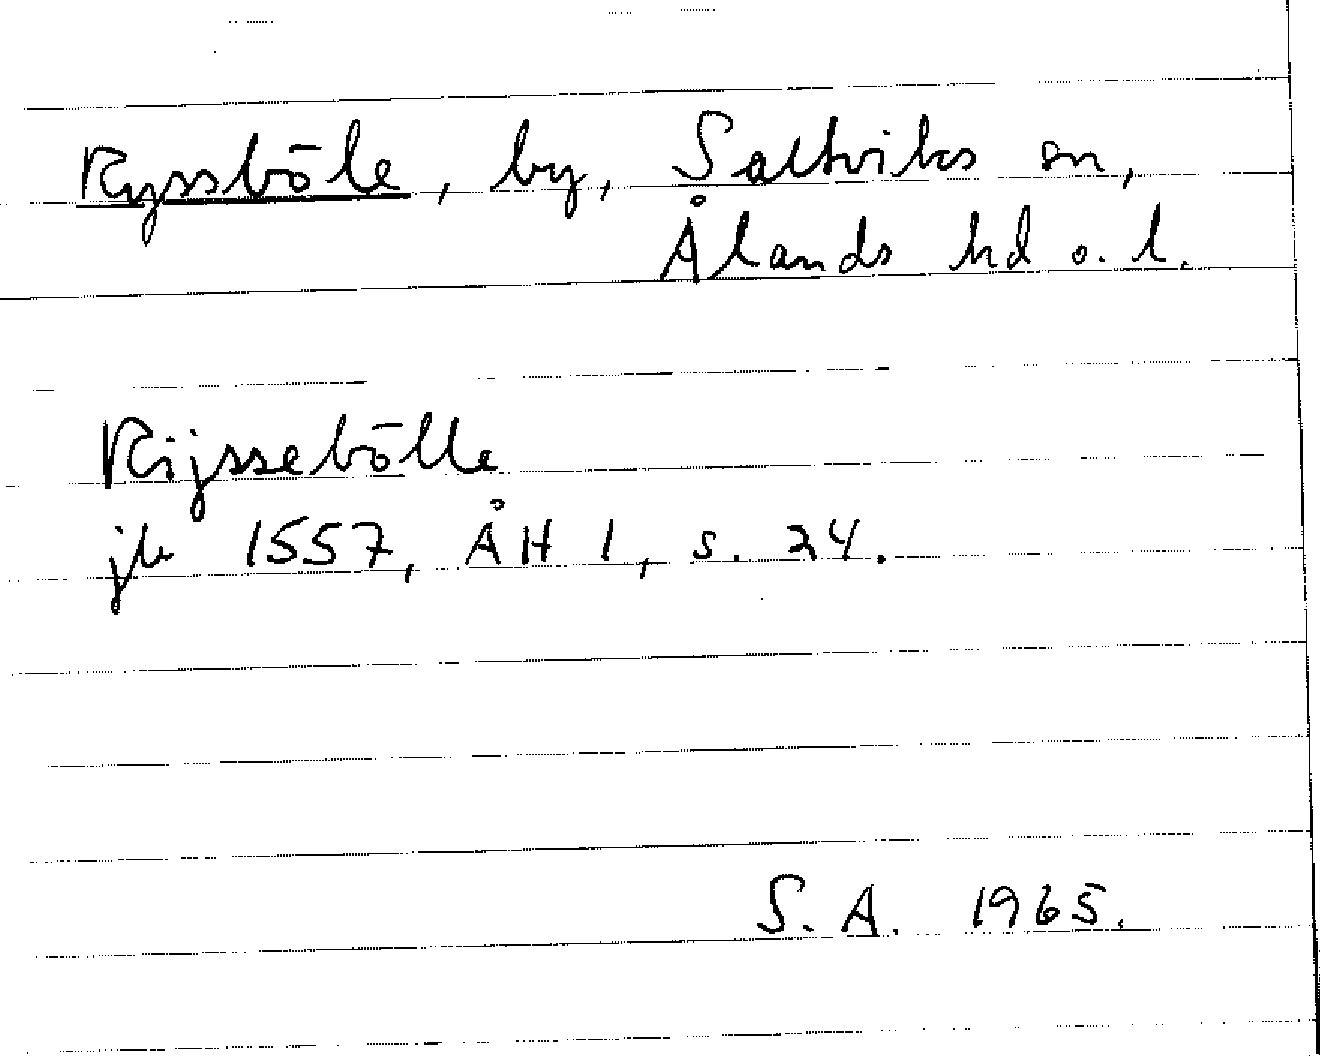 Ryssböle, by, Saltviks sn,
Ålands hd o. l.
Rijssebölle
jb 1557, ÅH 1, s. 24.
S. A. 1965.